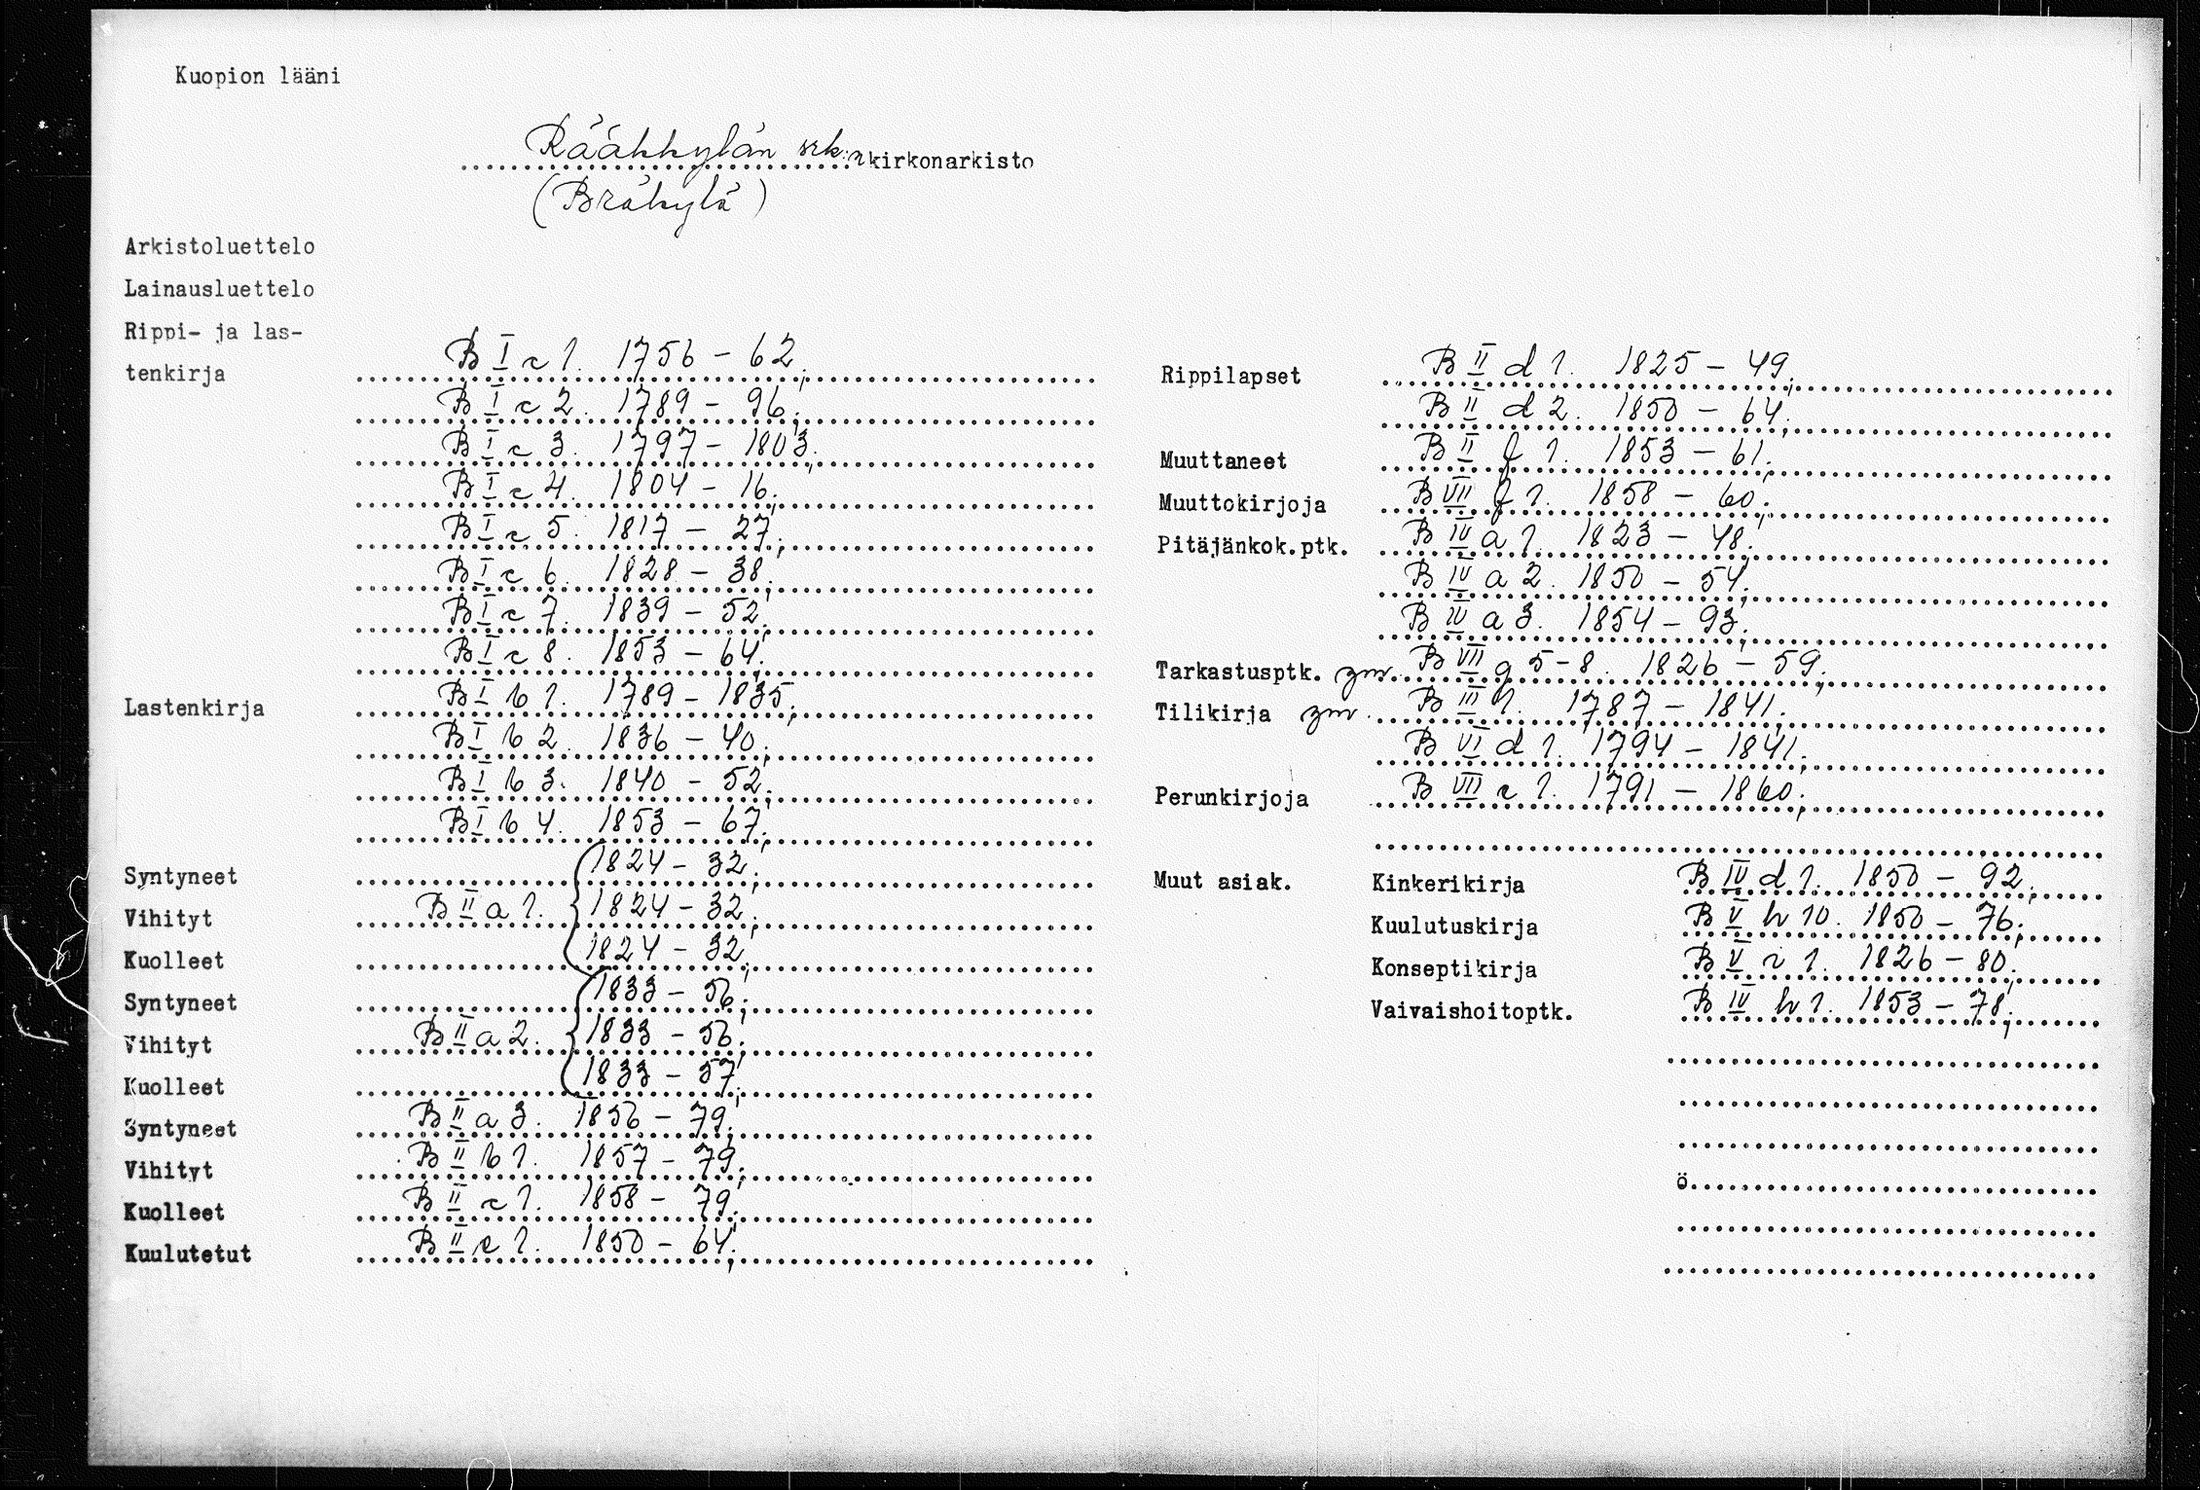 Kuopion lääni
Rääkkylän srk:n kirkonarkisto
(Bräkylä)
Arkistoluettelo
Lainausluettelo
Rippi- ja las-
tenkirja B I c 1. 1756 – 62;
B I c 2. 1789 – 96;
B I c 3. 1797 – 1803;
B I c 4. 1804 – 16;
B I c 5. 1817 – 27;
B I c 6. 1828 – 38;
B I c 7. 1839 – 52;
B I c 8. 1853 – 64;
Lastenkirja B I b 1. 1789 – 1835;
B I b 2. 1836 – 40;
B I b 3. 1840 – 52;
B I b 4. 1853 – 67;
Syntyneet 1824 – 32;
Vihityt B II a 1. 1824 – 32;
Kuolleet 1824 – 32;
Syntyneet 1833 – 56;
Vihityt B II a 2. 1833 – 56;
Kuolleet 1833 – 57;
Syntyneet B II a 3. 1856 – 79;
Vihityt B II b 1. 1857 – 79;
Kuolleet B II c 1. 1858 – 79;
Kuulutetut B II e 1. 1850 – 64;
Rippilapset B II d 1. 1825 – 49;
B II d 2. 1850 – 64;
Muuttaneet B II f 1. 1853 – 61;
Muuttokirjoja B VII f 1. 1858 – 60;
Pitäjänkok.ptk. B IV a 1. 1823 – 48;
B IV a 2. 1850 – 54;
B IV a 3. 1854 – 93;
Tarkastusptk. ym. B VII g 5-8. 1826 – 59;
Tilikirja ym. B III 1. 1787 – 1841;
B VI d 1. 1794 – 1841;
Perunkirjoja B VII c 1. 1791 – 1860;
Muut asiak. Kinkerikirja B IV d 1. 1850 – 92;
Kuulutuskirja B V h 10. 1850 – 76;
Konseptikirja B V i 1. 1826 – 80;
Vaivaishoitoptk. B IV h 1. 1853 – 78;
ö